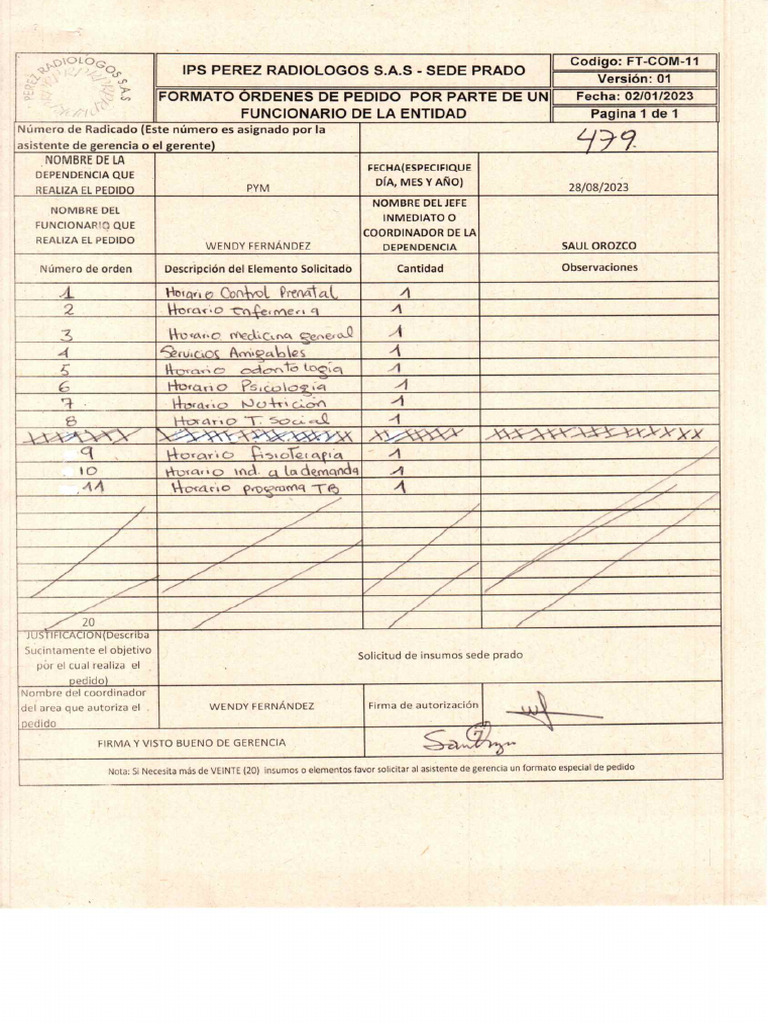 PEREZ RADIOLOGOS S.A.S
IPS PEREZ RADIOLOGOS S.A.S - SEDE PRADO
Codigo: FT-COM-11
Versión: 01
FORMATO ÓRDENES DE PEDIDO POR PARTE DE UN FUNCIONARIO DE LA ENTIDAD
Fecha: 02/01/2023
Pagina 1 de 1
Número de Radicado (Este número es asignado por la asistente de gerencia o el gerente)
479
NOMBRE DE LA DEPENDENCIA QUE REALIZA EL PEDIDO
PYM
FECHA(ESPECIFIQUE DÍA, MES Y AÑO)
28/08/2023
NOMBRE DEL FUNCIONARIO QUE REALIZA EL PEDIDO
WENDY FERNÁNDEZ
NOMBRE DEL JEFE INMEDIATO O COORDINADOR DE LA DEPENDENCIA
SAUL OROZCO
Número de orden Descripción del Elemento Solicitado Cantidad Observaciones
1 Horario Control Prenatal 1
2 Horario Enfermeria 1
3 Horario medicina general 1
4 Servicios Amigables 1
5 Horario odontología 1
6 Horario Psicología 1
7 Horario Nutrición 1
8 Horario T. Social 1
9 Horario fisioterapia 1
10 Horario ind. a la demanda 1
11 Horario programa TB 1
20
JUSTIFICACION(Describa Sucintamente el objetivo por el cual realiza el pedido)
Solicitud de insumos sede prado
Nombre del coordinador del area que autoriza el pedido
WENDY FERNÁNDEZ
Firma de autorización
FIRMA Y VISTO BUENO DE GERENCIA
Nota: Si Necesita más de VEINTE (20) insumos o elementos favor solicitar al asistente de gerencia un formato especial de pedido